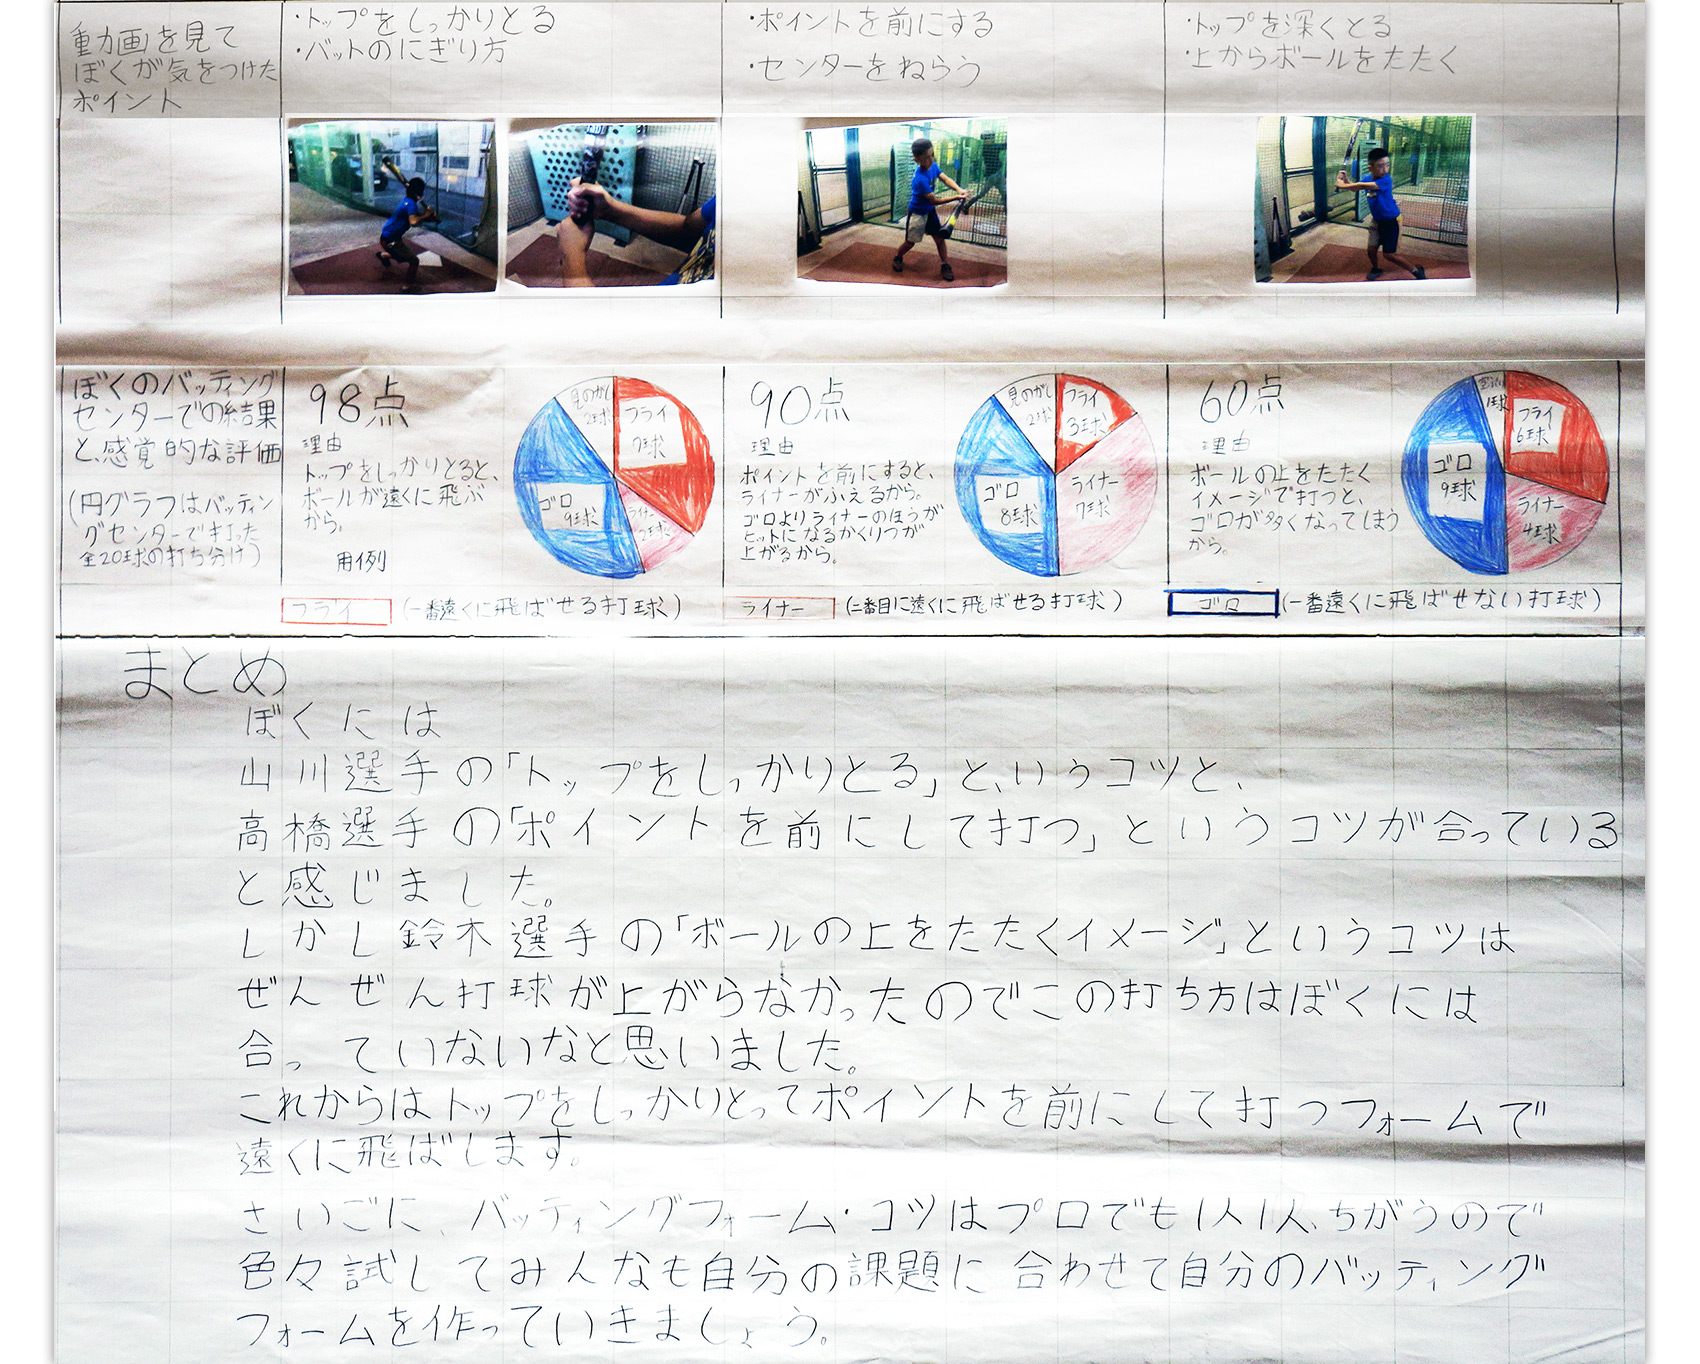 動画を見て
ぼくが気をつけた
ポイント
・トップをしっかりとる
・バットのにぎり方
・ポイントを前にする
・センターをねらう
・トップを深くとる
・上からボールをたたく
ぼくのバッティング
センターでの結果
と、感覚的な評価
(円グラフはバッティン
グセンターで打った
全20球の打ち分け)
98点
理由
トップをしっかりとると、
ボールが遠くに飛ぶ
から。
用例
見のがし
2球
フライ
7球
ゴロ
9球
ライナー
2球
90点
理由
ポイントを前にすると、
ライナーがふえるから。
ゴロよりライナーのほうが
ヒットになるかくりつが
上がるから。
見のがし
2球
フライ
3球
ゴロ
8球
ライナー
7球
60点
理由
ボールの上をたたく
イメージで打つと、
ゴロが多くなってしまう
から。
1球
フライ
6球
ゴロ
9球
ライナー
4球
フライ (一番遠くに飛ばせる打球)
ライナー (二番目に遠くに飛ばせる打球)
ゴロ (一番遠くに飛ばせない打球)
まとめ
ぼくには
山川選手の「トップをしっかりとる」と、いうコツと、
高橋選手の「ポイントを前にして打つ」というコツが合っている
と感じました。
しかし鈴木選手の「ボールの上をたたくイメージ」というコツは
ぜんぜん打球が上がらなかったのでこの打ち方はぼくには
合っていないなと思いました。
これからはトップをしっかりとってポイントを前にして打つフォームで
遠くに飛ばします。
さいごに、バッティングフォーム・コツはプロでも1人1人、ちがうので
色々試してみんなも自分の課題に合わせて自分のバッティング
フォームを作っていきましょう。